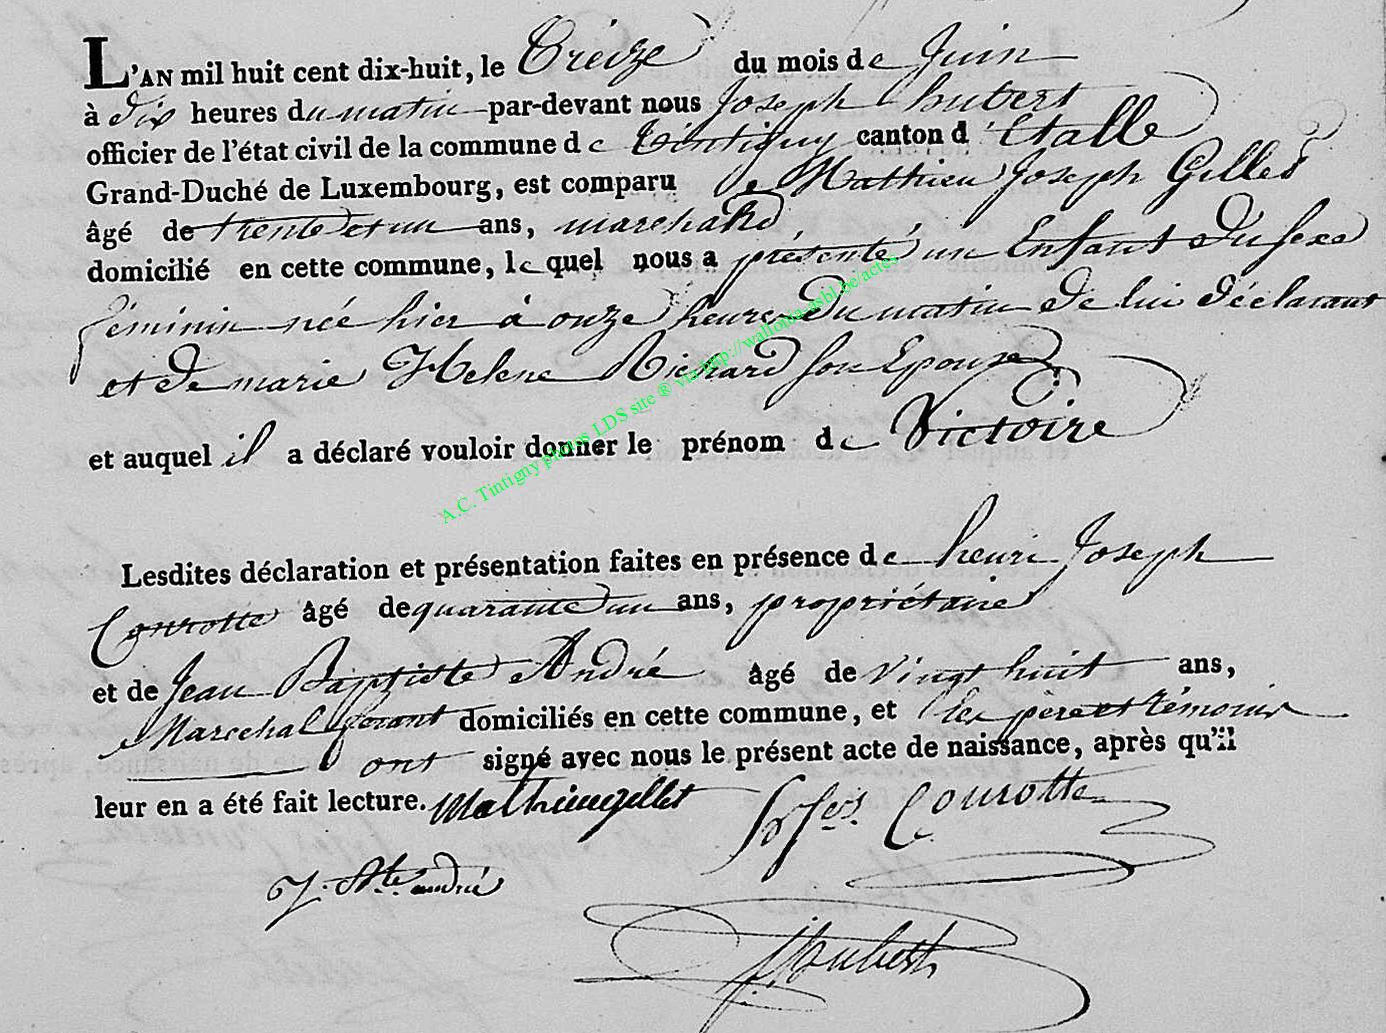 L'AN mil huit cent dix-huit, le Treize du mois de Juin
à dix heures du matin par-devant nous Joseph hubert
officier de l'état civil de la commune de Tintigny canton d'Etalle
Grand-Duché de Luxembourg, est comparu le Mathieu Joseph Gilles
âgé de trente et un ans, marchand
domicilié en cette commune, lequel nous a présenté un Enfant du sexe
féminin née hier à onze heures du matin de lui déclarant
et de marie Helene Richard son Epouse
et auquel il a déclaré vouloir donner le prénom de Victoire
Lesdites déclaration et présentation faites en présence de henri Joseph
Courotte âgé de quarante un ans, propriétaire
et de Jean Baptiste André âgé de vingt huit ans,
Marechal ferant domiciliés en cette commune, et les père et témoins
ont signé avec nous le présent acte de naissance, après qu'il
leur en a été fait lecture. Mathieu gillet h jos. Courotte
J. Bte. andré
Jhubert
A.C. Tintigny photos LDS site ® via http://wallonia-asbl.be/actes